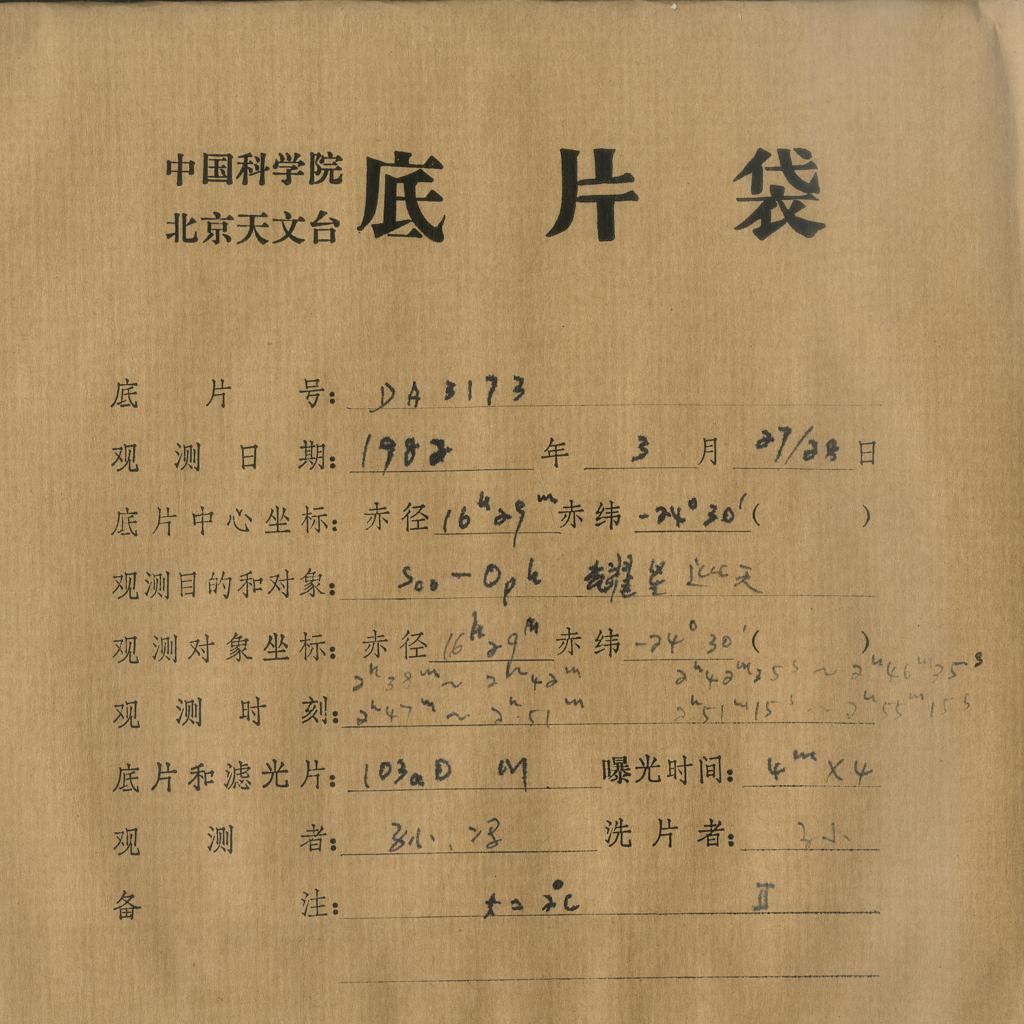 中国科学院
北京天文台 底片袋
底片号: DA 3173
观测日期: 1982 年 3 月 27/28 日
底片中心坐标: 赤径 16ʰ29ᵐ 赤纬 -24°30′( )
观测目的和对象: Sco-Oph 耀星 天
观测对象坐标: 赤径 16ʰ29ᵐ 赤纬 -24°30′( )
2ʰ38ᵐ~2ʰ42ᵐ 2ʰ42ᵐ35ˢ~2ʰ46ᵐ35ˢ
观测时刻: 2ʰ47ᵐ~2ʰ51ᵐ 2ʰ51ᵐ15ˢ-2ʰ55ᵐ15ˢ
底片和滤光片: 103aD 曝光时间: 4ᵐ×4
观测者: 洗片者:
备注: t=2°C II